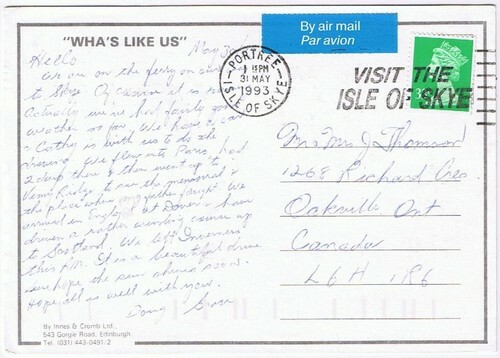 "WHA'S LIKE US"
By air mail
Par avion
PORTREE
1 15PM
31 MAY
1993
ISLE OF SKYE
VISIT THE
ISLE OF SKYE
May 30
Hello
We are on the ferry on our way
to Skye. Of course it is
Actually we've had fairly good
weather so far. We have a car
- Cathy is with us to do the
driving. We flew into Paris, had
2 days there & then went up to
Vimy Ridge to see the memorial &
the place where my father fought. We
arrived in England at Dover & have
driven a rather winding course up
to Scotland. We left Inverness
this A.M. It is a beautiful drive
we hope the sun shines soon.
Hope all is well with you.
Doug
Mr & Mrs J Thomson
1268 Richard Cres.
Oakville Ont
Canada
L6H 1R6
By Innes & Cromb Ltd.,
543 Gorgie Road, Edinburgh.
Tel. (031) 443-0491/2